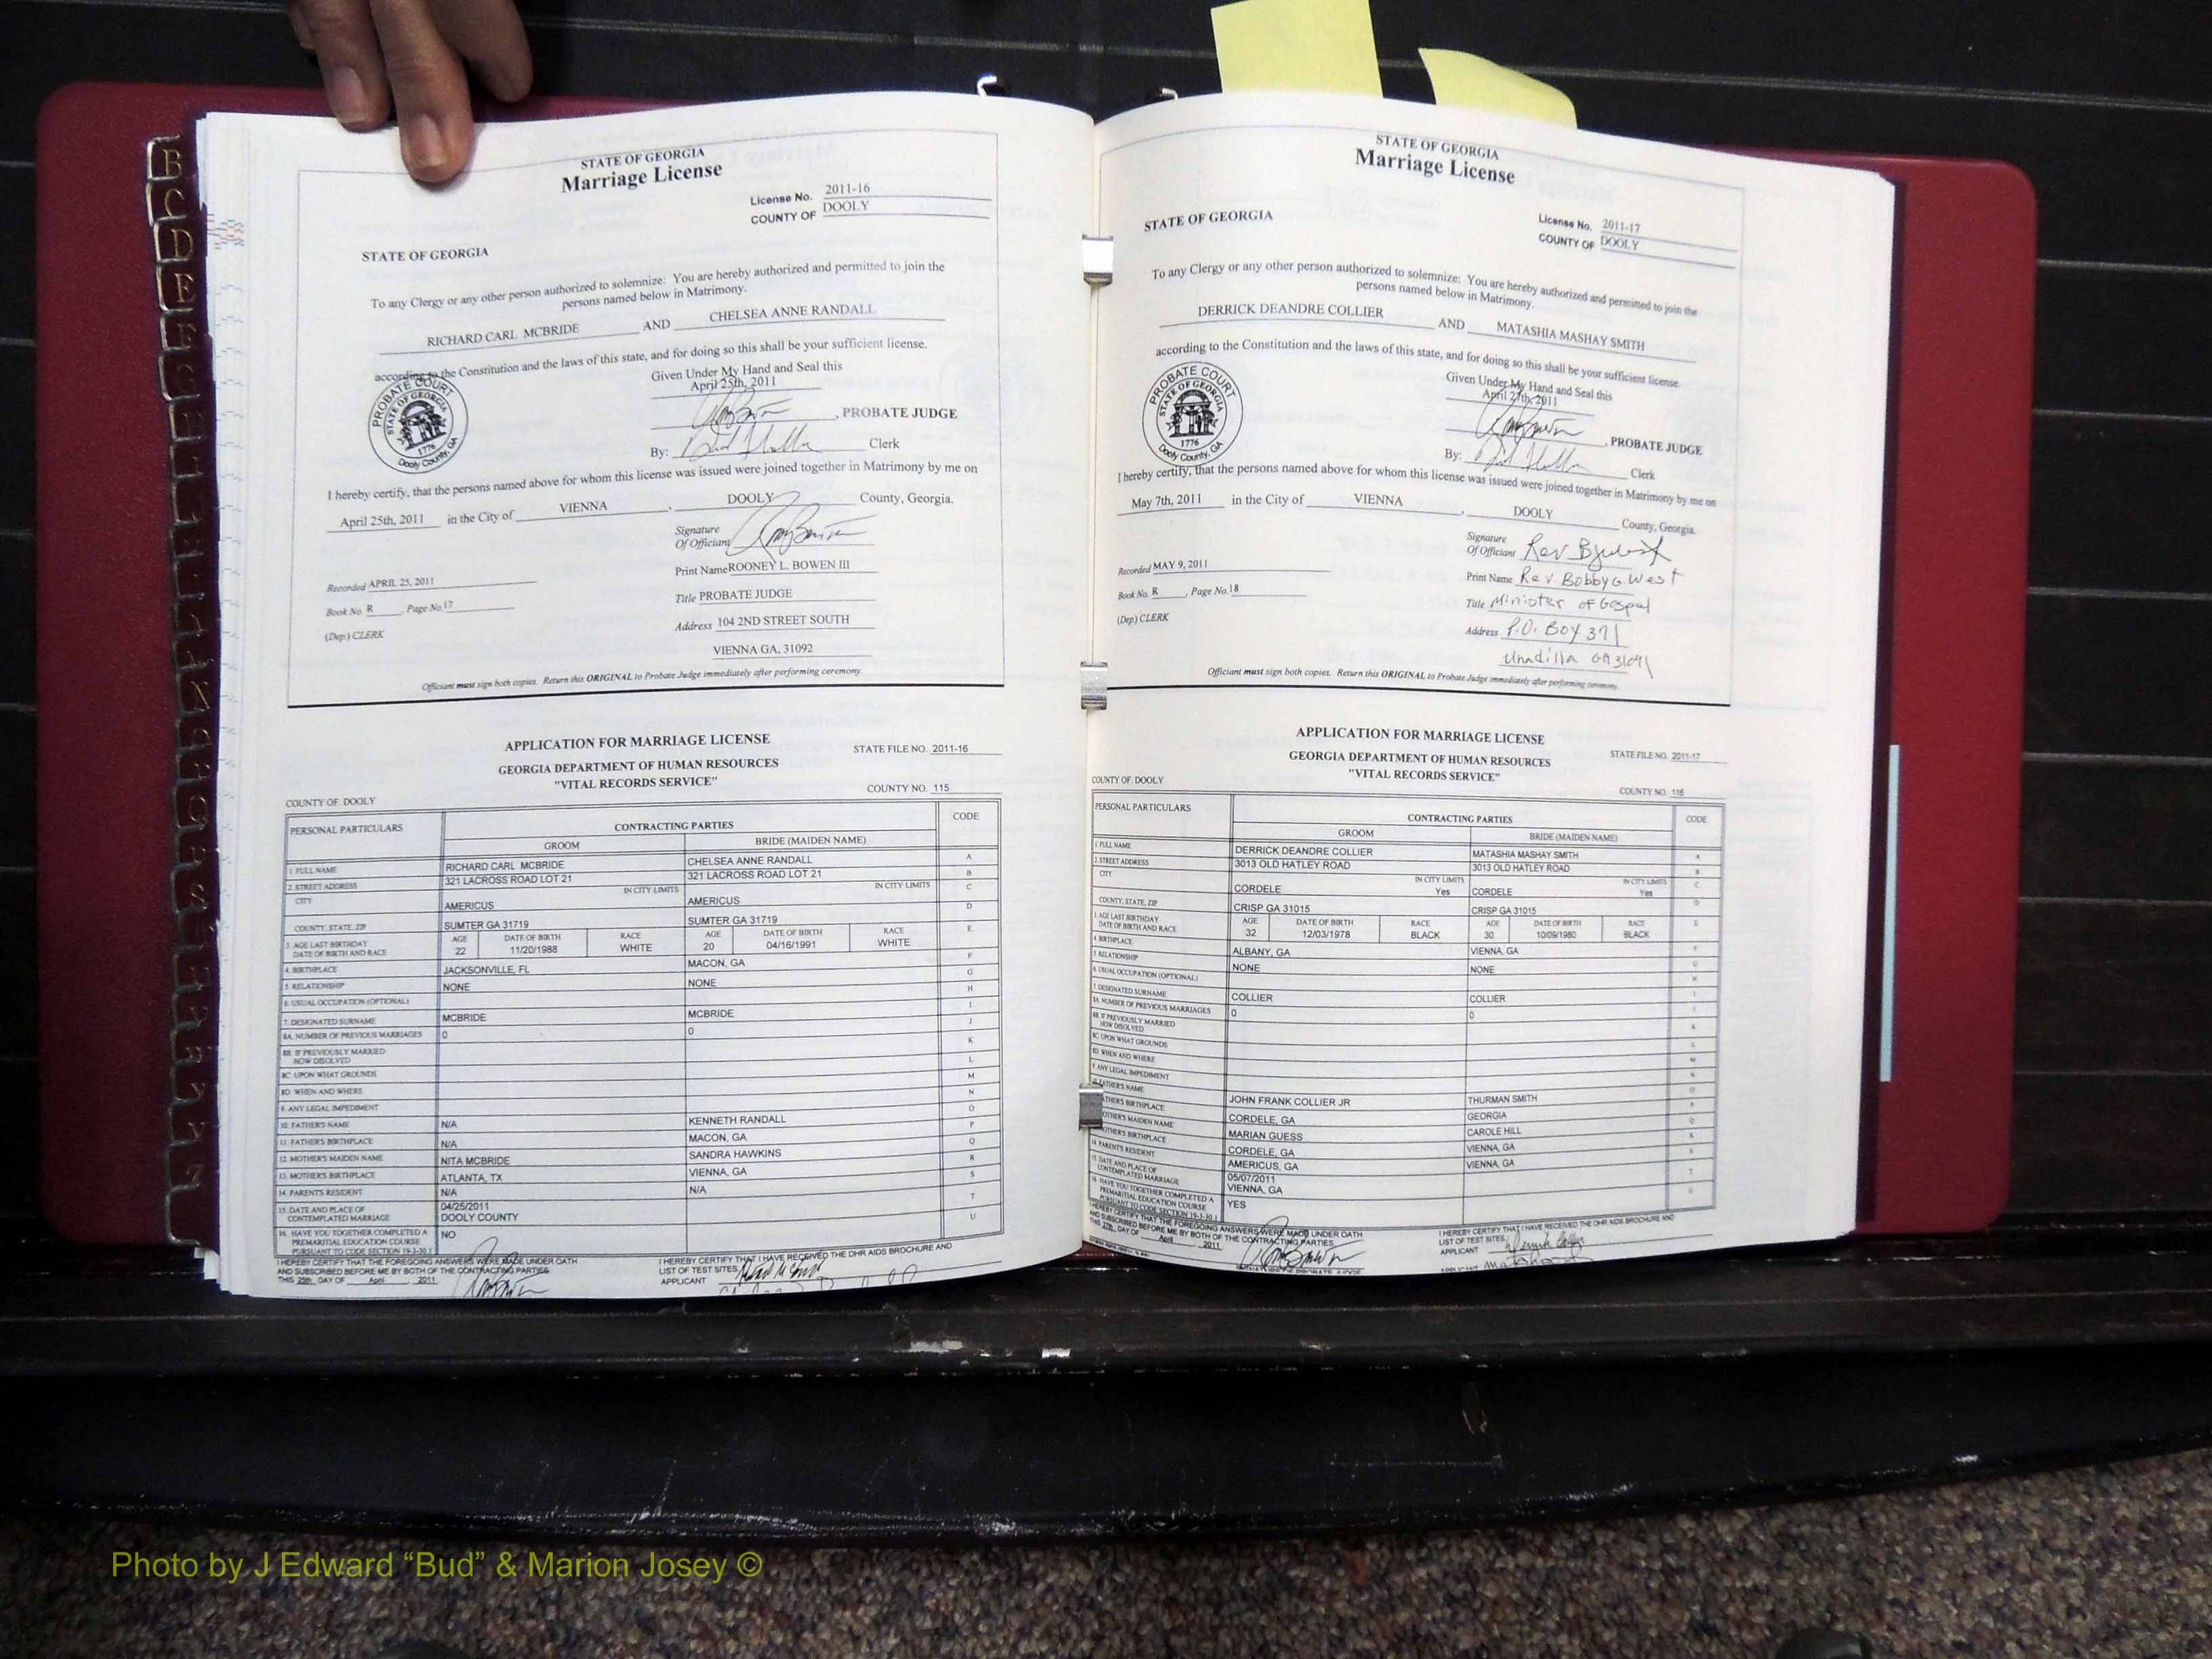 B
C
D
E
F
G
STATE OF GEORGIA
Marriage License
License No. 2011-16
COUNTY OF DOOLY
STATE OF GEORGIA
To any Clergy or any other person authorized to solemnize: You are hereby authorized and permitted to join the
persons named below in Matrimony.
RICHARD CARL MCBRIDE AND CHELSEA ANNE RANDALL
according to the Constitution and the laws of this state, and for doing so this shall be your sufficient license.
Given Under My Hand and Seal this
April 25th, 2011
, PROBATE JUDGE
By: Clerk
PROBATE COURT
STATE OF GEORGIA
1776
Dooly County, GA
I hereby certify, that the persons named above for whom this license was issued were joined together in Matrimony by me on
April 25th, 2011 in the City of VIENNA , DOOLY County, Georgia.
Signature
Of Officiant
Print Name ROONEY L. BOWEN III
Recorded APRIL 25, 2011
Title PROBATE JUDGE
Book No. R , Page No. 17
Address 104 2ND STREET SOUTH
(Dep) CLERK
VIENNA GA, 31092
Officiant must sign both copies. Return this ORIGINAL to Probate Judge immediately after performing ceremony.
APPLICATION FOR MARRIAGE LICENSE
STATE FILE NO. 2011-16
GEORGIA DEPARTMENT OF HUMAN RESOURCES
"VITAL RECORDS SERVICE"
COUNTY NO. 115
COUNTY OF. DOOLY
PERSONAL PARTICULARS CONTRACTING PARTIES CODE
GROOM BRIDE (MAIDEN NAME)
1. FULL NAME RICHARD CARL MCBRIDE CHELSEA ANNE RANDALL A
2. STREET ADDRESS 321 LACROSS ROAD LOT 21 321 LACROSS ROAD LOT 21 B
IN CITY LIMITS IN CITY LIMITS C
CITY AMERICUS AMERICUS D
COUNTY, STATE, ZIP SUMTER GA 31719 SUMTER GA 31719
3. AGE LAST BIRTHDAY AGE DATE OF BIRTH RACE AGE DATE OF BIRTH RACE E
DATE OF BIRTH AND RACE 22 11/20/1988 WHITE 20 04/16/1991 WHITE
4. BIRTHPLACE JACKSONVILLE, FL MACON, GA F
5. RELATIONSHIP NONE NONE G
6. USUAL OCCUPATION (OPTIONAL) H
7. DESIGNATED SURNAME MCBRIDE MCBRIDE I
8A. NUMBER OF PREVIOUS MARRIAGES 0 0 J
8B. IF PREVIOUSLY MARRIED K
HOW DISOLVED
8C. UPON WHAT GROUNDS L
8D. WHEN AND WHERE M
9. ANY LEGAL IMPEDIMENT N
10. FATHER'S NAME N/A KENNETH RANDALL O
11. FATHER'S BIRTHPLACE N/A MACON, GA P
12. MOTHER'S MAIDEN NAME NITA MCBRIDE SANDRA HAWKINS Q
13. MOTHER'S BIRTHPLACE ATLANTA, TX VIENNA, GA R
14. PARENTS RESIDENT N/A N/A S
15. DATE AND PLACE OF 04/25/2011 T
CONTEMPLATED MARRIAGE DOOLY COUNTY
16. HAVE YOU TOGETHER COMPLETED A NO U
PREMARITIAL EDUCATION COURSE
PURSUANT TO CODE SECTION 19-3-30.1
I HEREBY CERTIFY THAT THE FOREGOING ANSWERS WERE MADE UNDER OATH
AND SUBSCRIBED BEFORE ME BY BOTH OF THE CONTRACTING PARTIES.
THIS 25th DAY OF April , 2011
I HEREBY CERTIFY THAT I HAVE RECEIVED THE DHR AIDS BROCHURE AND
LIST OF TEST SITES.
APPLICANT
STATE OF GEORGIA
Marriage License
License No. 2011-17
COUNTY OF DOOLY
STATE OF GEORGIA
To any Clergy or any other person authorized to solemnize: You are hereby authorized and permitted to join the
persons named below in Matrimony.
DERRICK DEANDRE COLLIER AND MATASHIA MASHAY SMITH
according to the Constitution and the laws of this state, and for doing so this shall be your sufficient license.
Given Under My Hand and Seal this
April 27th, 2011
, PROBATE JUDGE
By: Clerk
PROBATE COURT
STATE OF GEORGIA
1776
Dooly County, GA
I hereby certify, that the persons named above for whom this license was issued were joined together in Matrimony by me on
May 7th, 2011 in the City of VIENNA , DOOLY County, Georgia.
Signature
Of Officiant Rev
Recorded MAY 9, 2011
Print Name Rev Bobby G West
Book No. R , Page No. 18
Title Minister of Gospel
(Dep) CLERK
Address P.O. Boy 371
Unadilla GA 31091
Officiant must sign both copies. Return this ORIGINAL to Probate Judge immediately after performing ceremony.
APPLICATION FOR MARRIAGE LICENSE
STATE FILE NO. 2011-17
GEORGIA DEPARTMENT OF HUMAN RESOURCES
"VITAL RECORDS SERVICE"
COUNTY OF. DOOLY
COUNTY NO. 116
PERSONAL PARTICULARS CONTRACTING PARTIES CODE
GROOM BRIDE (MAIDEN NAME)
1. FULL NAME DERRICK DEANDRE COLLIER MATASHIA MASHAY SMITH A
2. STREET ADDRESS 3013 OLD HATLEY ROAD 3013 OLD HATLEY ROAD B
CITY IN CITY LIMITS IN CITY LIMITS C
CORDELE Yes CORDELE Yes
COUNTY, STATE, ZIP CRISP GA 31015 CRISP GA 31015 D
3. AGE LAST BIRTHDAY AGE DATE OF BIRTH RACE AGE DATE OF BIRTH RACE E
DATE OF BIRTH AND RACE 32 12/03/1978 BLACK 30 10/09/1980 BLACK
4. BIRTHPLACE ALBANY, GA VIENNA, GA F
5. RELATIONSHIP NONE NONE G
6. USUAL OCCUPATION (OPTIONAL) H
7. DESIGNATED SURNAME COLLIER COLLIER I
8A. NUMBER OF PREVIOUS MARRIAGES 0 0 J
8B. IF PREVIOUSLY MARRIED K
HOW DISOLVED
8C. UPON WHAT GROUNDS L
8D. WHEN AND WHERE M
9. ANY LEGAL IMPEDIMENT N
FATHER'S NAME JOHN FRANK COLLIER JR THURMAN SMITH O
FATHER'S BIRTHPLACE CORDELE, GA GEORGIA P
MOTHER'S MAIDEN NAME MARIAN GUESS CAROLE HILL Q
MOTHER'S BIRTHPLACE CORDELE, GA VIENNA, GA R
14. PARENTS RESIDENT AMERICUS, GA VIENNA, GA S
15. DATE AND PLACE OF 05/07/2011 T
CONTEMPLATED MARRIAGE VIENNA, GA
16. HAVE YOU TOGETHER COMPLETED A YES U
PREMARITIAL EDUCATION COURSE
PURSUANT TO CODE SECTION 19-3-30.1
I HEREBY CERTIFY THAT THE FOREGOING ANSWERS WERE MADE UNDER OATH
AND SUBSCRIBED BEFORE ME BY BOTH OF THE CONTRACTING PARTIES.
THIS 27th DAY OF April , 2011
I HEREBY CERTIFY THAT I HAVE RECEIVED THE DHR AIDS BROCHURE AND
LIST OF TEST SITES.
APPLICANT Derrick Collier
Photo by J Edward “Bud” & Marion Josey ©